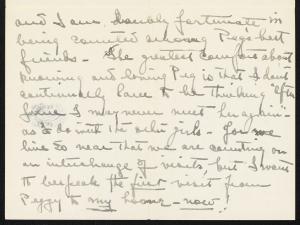 and I am doubly fortunate in
being counted among Peg's best
friends - The greatest comfort about
knowing and loving Peg is that I don't
continually have to be thinking "After
June I may never meet her again"-
as I do with the other girls - for we
live so near that we are counting on
an interchange of visits, but I want
to bespeak the first visit from
Peggy to my house - now!